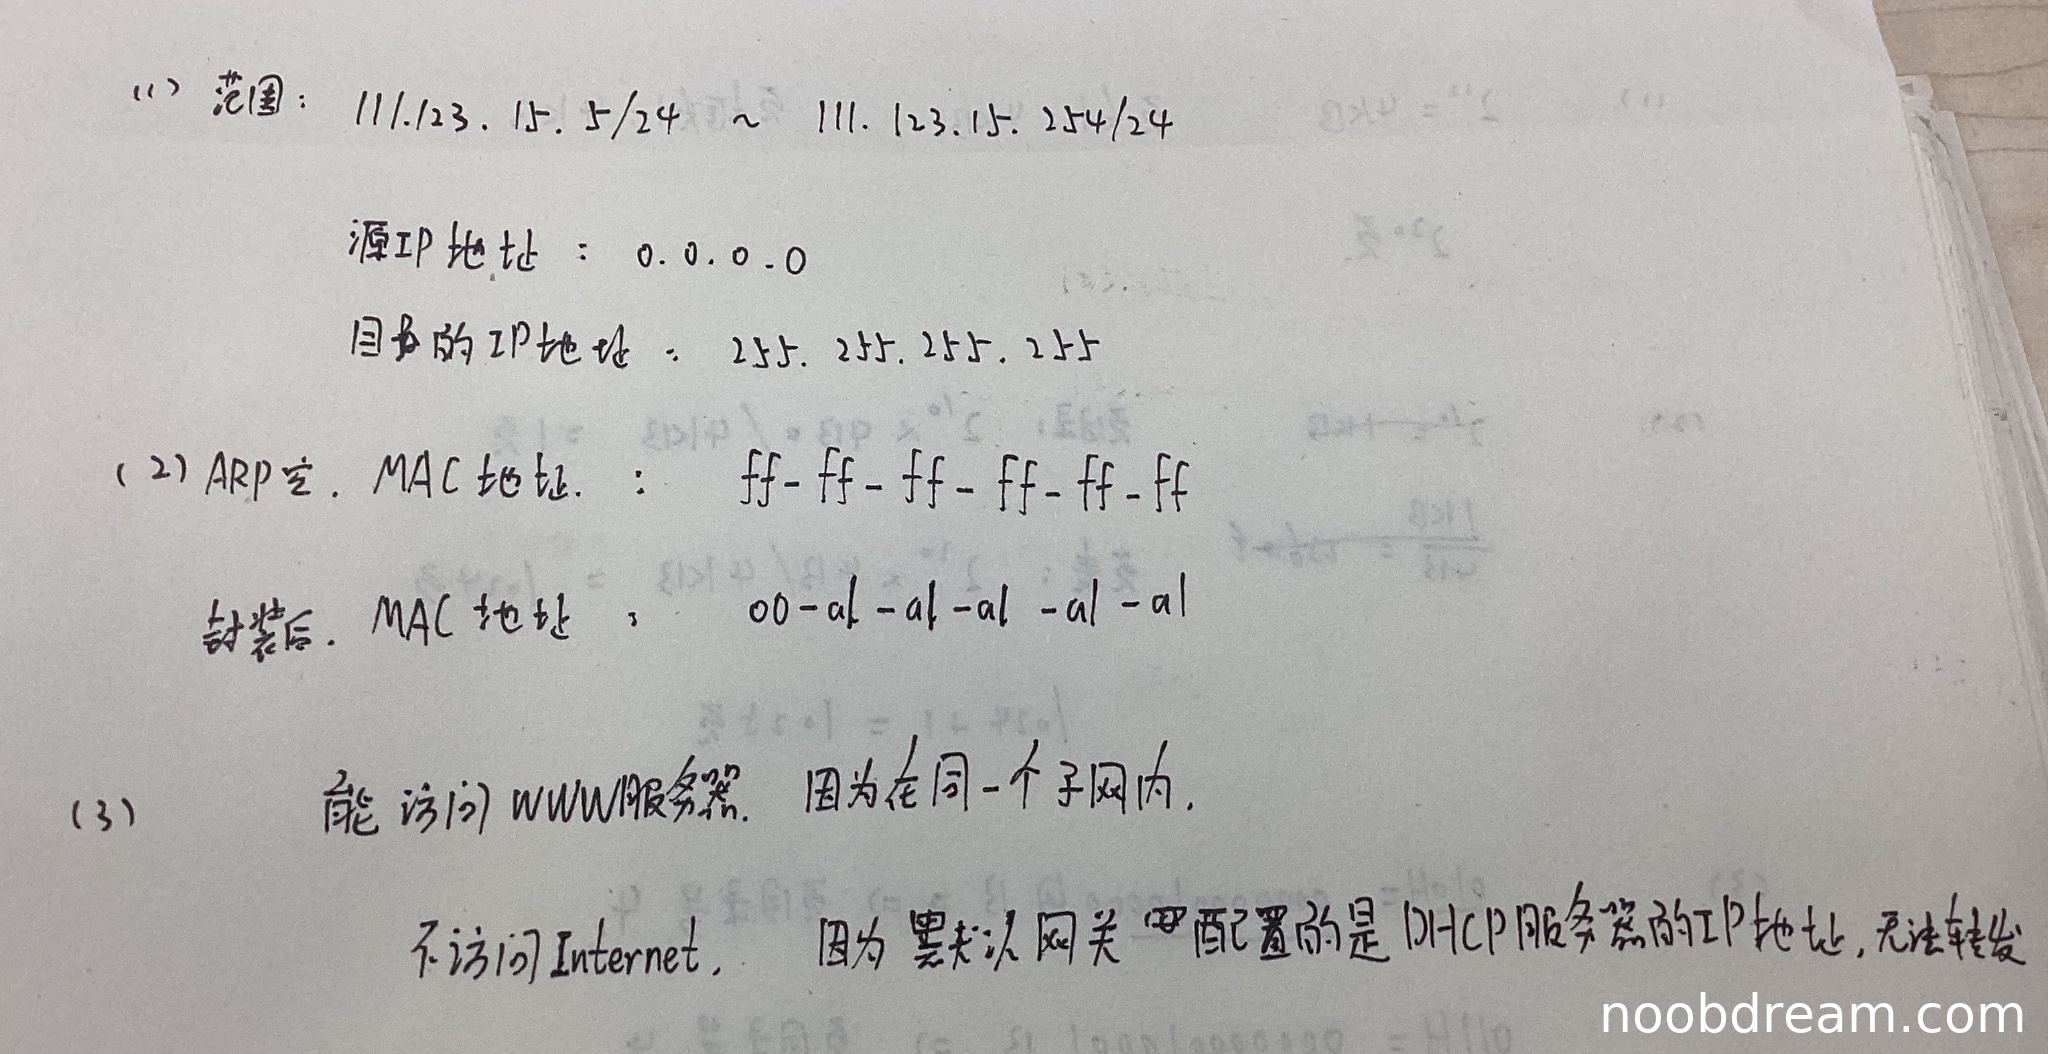 (1) 范围: 111.123.15.5/24 ~ 111.123.15.254/24
源IP地址: 0.0.0.0
目的IP地址: 255.255.255.255
(2) ARP MAC地址.: ff-ff-ff-ff-ff-ff
封装后. MAC地址: 00-a1-a1-a1-a1-a1
(3) 能访问WWW服务器. 因为在同一个子网内.
不访问Internet, 因为默认网关配置的是DHCP服务器的IP地址,无法转发
noobdream.com